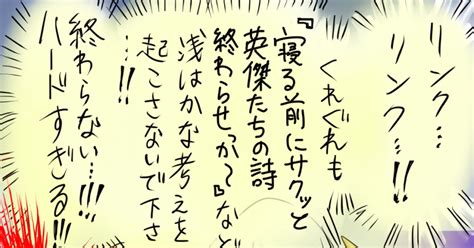 リンク…
リンク…!!
くれぐれも
『寝る前にサクッと
英傑たちの詩
終わらせっか〜』など
浅はかな考えを
起こさないで下さ
…!!
終わらない…!!!
ハードすぎる!!!